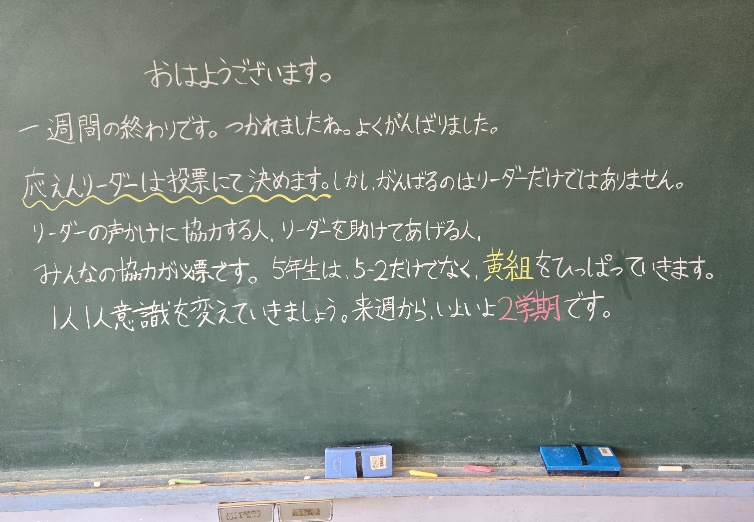 おはようございます。
一週間の終わりです。つかれましたね。よくがんばりました。
応えんリーダーは投票にて決めます。しかし、がんばるのはリーダーだけではありません。
リーダーの声かけに協力する人、リーダーを助けてあげる人、
みんなの協力が必票です。5年生は、5-2だけでなく、黄組をひっぱっていきます。
1人1人意識を変えていきましょう。来週から、いよいよ2学期です。